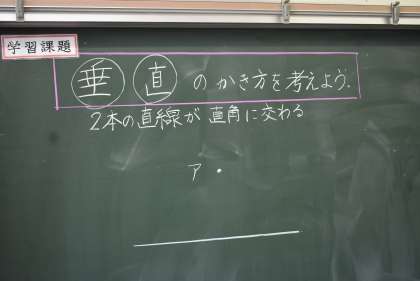 学習課題
垂直のかき方を考えよう。
2本の直線が直角に交わる
ア